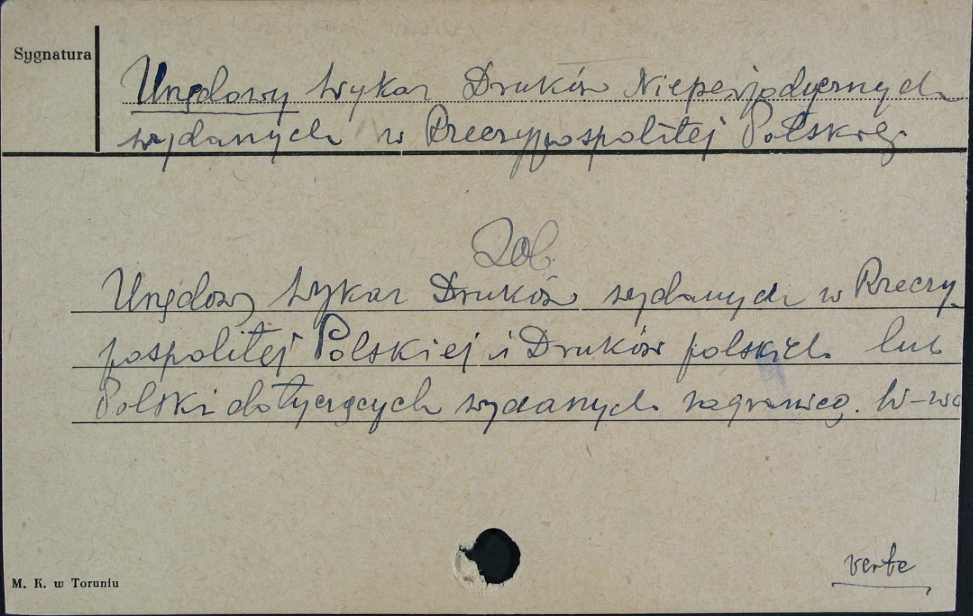 Sygnatura
Urzędowy Wykaz Druków Nieperjodycznych
wydanych w Rzeczypospolitej Polskiej
Zob.
Urzędowy Wykaz Druków wydanych w Rzeczy
pospolitej Polskiej i Druków polskich lub
Polski dotyczących wydanych zagranicą. W-wa
verte
M. K. w Toruniu